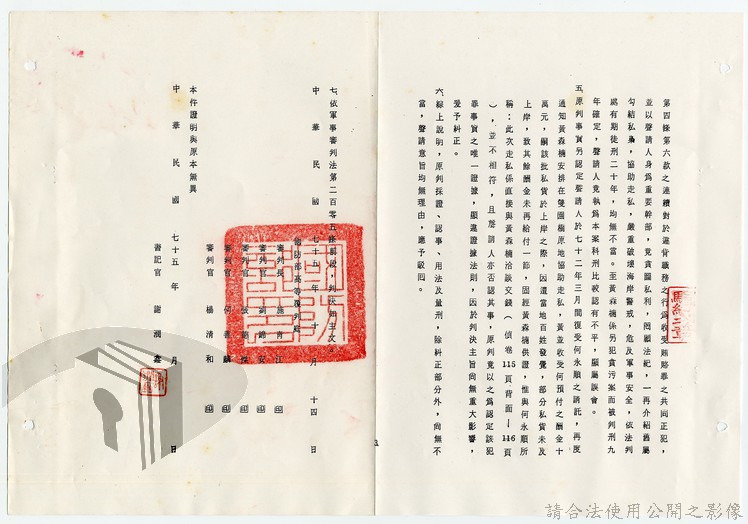 第四條第六款之連續對於違背職務之行為收受賄賂罪之共同正犯，
並以聲請人身為重要幹部，竟貪圖私利，罔顧法紀，一再介紹舊屬
勾結私梟，協助走私，嚴重破壞海岸警戒，危及軍事安全，依法判
處有期徒刑二十年，均無不當。至黃森楠係另犯貪污案而被判刑九
年確定，聲請人竟執為本案科刑比較認有不平，顯屬誤會。
五、原判事實另認定聲請人於七十二年三月間復受何永順之請託，再度
通知黃森楠安排在雙園樹原地協助走私，黃並收受何預付之酬金十
萬元，嗣該批私貨於上岸之際，因遭當地百姓發覺，部分私貨未及
上岸，致其餘酬金未再給付一節，固經黃森楠供證，惟與何永順所
稱：此次走私係直接與黃森楠洽談交錢（偵卷115頁背面—116頁
），並不相符，且聲請人亦否認其事，原判竟以之為認定該犯
罪事實之唯一證據，顯違證據法則，因於判決主旨尚無重大影響，
爰予糾正。
六、綜上說明，原判採證、認事、用法及量刑，除糾正部分外，尚無不
當，聲請意旨均無理由，應予駁回。
七、依軍事審判法第二百零五條前段，判決如主文。
中華民國七十五年十月十四日
國防部高等覆判庭
審判長 施
審判官 劉錦安
審判官 張
審判官 何
審判官 楊清和
本件證明與原本無異
中華民國七十五年 月 日
書記官 謝潤鑫
請合法使用公開之影像